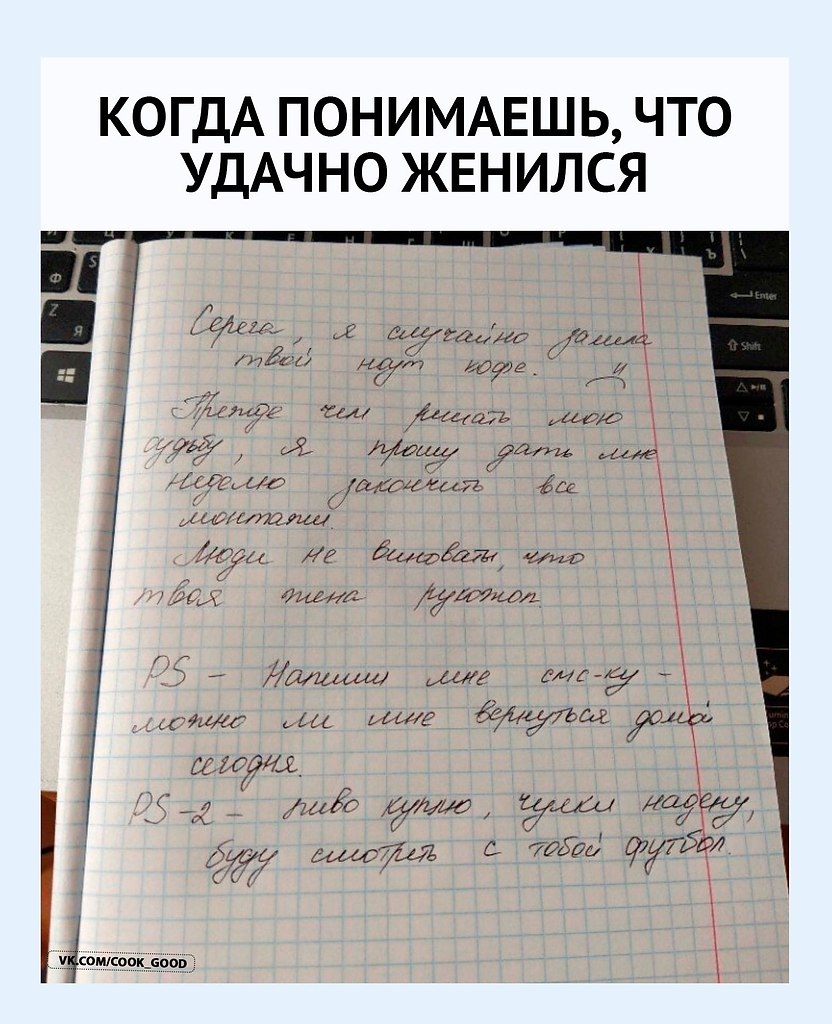 КОГДА ПОНИМАЕШЬ, ЧТО
УДАЧНО ЖЕНИЛСЯ
Серега, я случайно залила
твой ноут кофе.
Прежде чем решать мою
судьбу, я прошу дать мне
неделю закончить все
монтажи.
Люди не виноваты, что
твоя жена рукожоп
PS - Напиши мне смс-ку -
можно ли мне вернуться домой
сегодня.
PS-2 - пиво куплю, чулки надену,
буду смотреть с тобой футбол.
Enter
Shift
Z
Я
Ф
S
VK.COM/COOK_GOOD